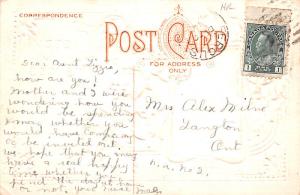 CORRESPONDENCE
POST CARD
FOR ADDRESS
ONLY
Dear Aunt Lizzie,
how are you?
Mother and I were
wondering how you
would be spending
xmas whether you
would have company
or be invited out.
we hope that you may
have a real happy
time whether you
spend the day at home
or not, your niece
Mrs Alex Milne
Langton
Ont
R.R. No 3.
1 1